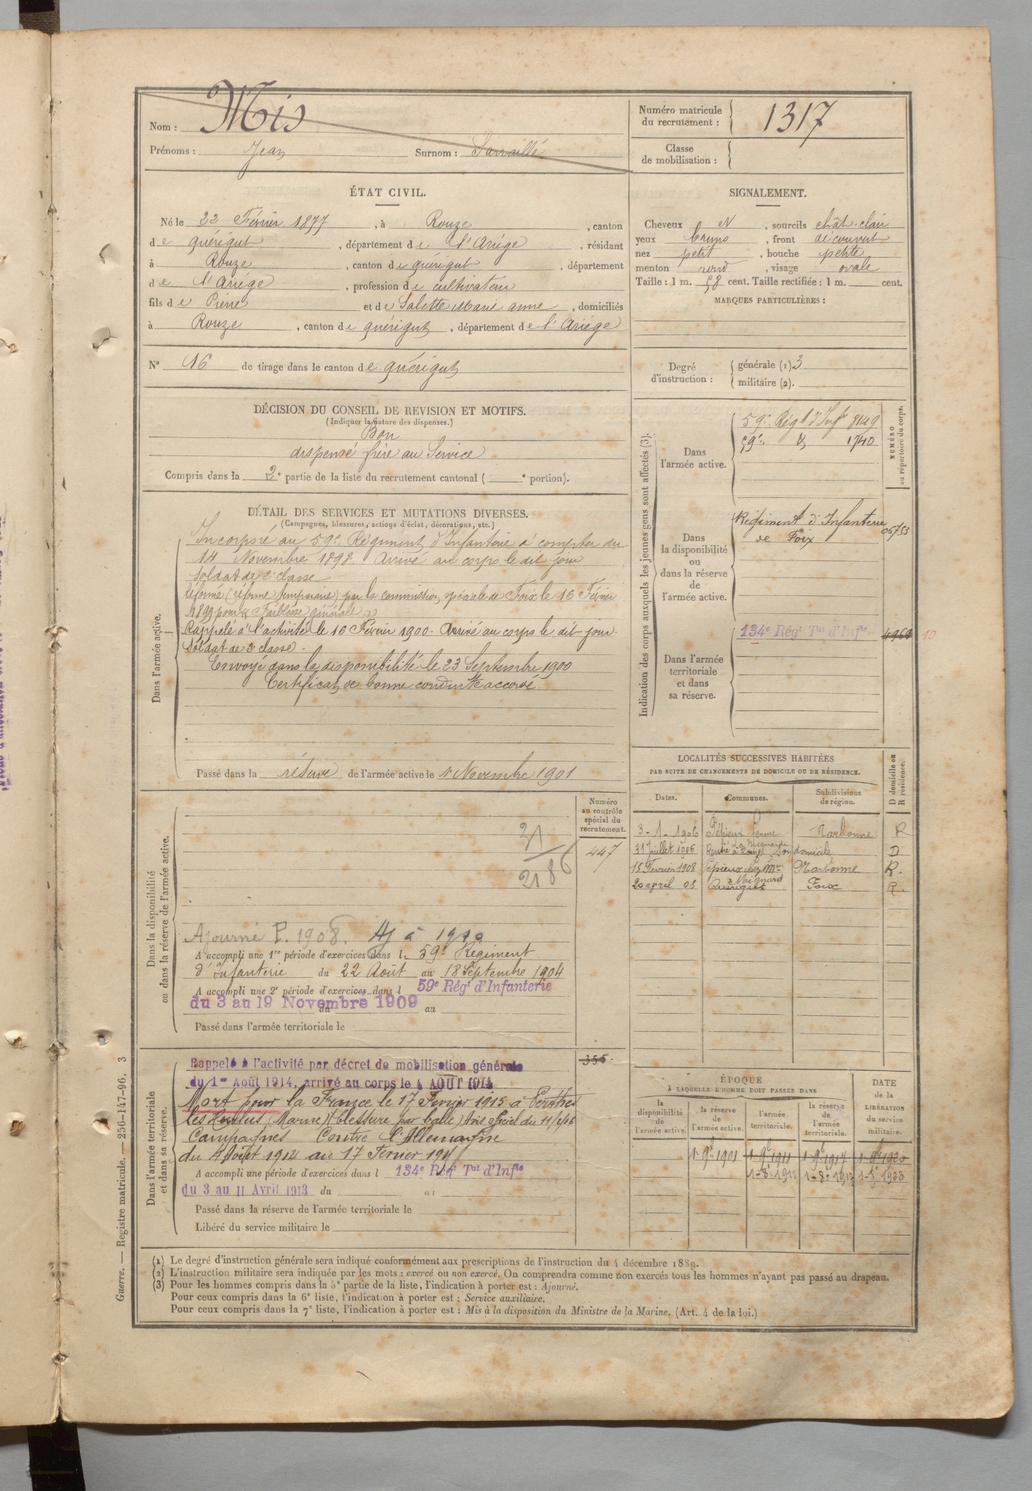 Nom : Mis
Prénoms : Jean Surnom :
Numéro matricule du recrutement : 1317
Classe de mobilisation :
ÉTAT CIVIL.
Né le 22 Février 1877, à Rouze, canton
de Quérigut, département de l'Ariège, résidant
à Rouze, canton de Quérigut, département
de l'Ariège, profession de cultivateur
fils de Pierre et de Salette Marie Anne, domiciliés
à Rouze, canton de Quérigut, département de l'Ariége
SIGNALEMENT.
Cheveux N, sourcils chât. clair
yeux bruns, front découvert
nez petit, bouche petite
menton rond, visage ovale
Taille : 1 m. 58 cent. Taille rectifiée : 1 m. cent.
MARQUES PARTICULIÈRES :
N° 16 de tirage dans le canton de Quérigut
Degré d'instruction : générale (1) 3
militaire (2).
DÉCISION DU CONSEIL DE REVISION ET MOTIFS.
(Indiquer la nature des dispenses.)
Bon
dispensé frère au Service
Compris dans la 2e partie de la liste du recrutement cantonal ( e portion).
DÉTAIL DES SERVICES ET MUTATIONS DIVERSES.
(Campagnes, blessures, actions d'éclat, décorations, etc.)
Dans l'armée active.
Incorporé au 59e Régiment d'Infanterie à compter du
14 Novembre 1898 Arrivé au corps le dit jour
soldat de 2e classe
Réformé (réforme temporaire) par la commission spéciale de Foix le 16 Février
1899 pour « Faiblesse générale »
Rappelé à l'activité le 16 Février 1900. Arrivé au corps le dit jour
Soldat de 2e classe.
Envoyé dans la disponibilité le 23 Septembre 1900
Certificat de bonne conduite accordé
Passé dans la réserve de l'armée active le 1 Novembre 1901
Indication des corps auxquels les jeunes gens sont affectés (3).
NUMÉRO au répertoire du corps.
Dans l'armée active.
59e Régt d'Infie 8149
59e d° 1740
Dans la disponibilité ou dans la réserve de l'armée active.
Régiment d'Infanterie
de Foix
Dans l'armée territoriale et dans sa réserve.
134e Régt Tal d'Infie
LOCALITÉS SUCCESSIVES HABITÉES
PAR SUITE DE CHANGEMENTS DE DOMICILE OU DE RÉSIDENCE.
Dates. Communes. Subdivisions de région. D domicile ou R résidence.
3-1-1906 Narbonne R
31 juillet 1906 domicile D
15 Février 1908 Narbonne R.
20 april 08 Quérigut Foix R.
Dans la disponibilité ou dans la réserve de l'armée active.
Numéro au contrôle spécial du recrutement.
447
Ajourné P. 1908. Aj à 1909
A accompli une 1re période d'exercices dans l 59e Régiment
d'Infanterie du 22 Août au 18 Septembre 1904
A accompli une 2e période d'exercices dans l 59e Régt d'Infanterie
du 3 au 19 Novembre 1909 du au
Passé dans l'armée territoriale le
Dans l'armée territoriale et dans sa réserve.
356
Rappelé à l'activité par décret de mobilisation générale
du 1er Août 1914, arrivé au corps le 4 AOUT 1914
Mort pour la France le 17 Février 1915 à Perthes
les Hurlus (Marne) (blessure par balle)
Campagnes Contre l'Allemagne
du 4 Août 1914 au 17 Février 1915
A accompli une période d'exercices dans l 134e Régt Tal d'Infie
du 3 au 11 Avril 1913 du au
Passé dans la réserve de l'armée territoriale le
Libéré du service militaire le
ÉPOQUE
À LAQUELLE L'HOMME DOIT PASSER DANS
la disponibilité de l'armée active. la réserve de l'armée active. l'armée territoriale. la réserve de l'armée territoriale.
DATE de la LIBÉRATION du service militaire.
(1) Le degré d'instruction générale sera indiqué conformément aux prescriptions de l'instruction du 4 décembre 1889.
(2) L'instruction militaire sera indiquée par les mots : exercé ou non exercé. On comprendra comme non exercés tous les hommes n'ayant pas passé au drapeau.
(3) Pour les hommes compris dans la 5e partie de la liste, l'indication à porter est : Ajourné.
Pour ceux compris dans la 6e liste, l'indication à porter est : Service auxiliaire.
Pour ceux compris dans la 7e liste, l'indication à porter est : Mis à la disposition du Ministre de la Marine. (Art. 4 de la loi.)
Guerre. — Registre matricule. — 256-147-96. 3